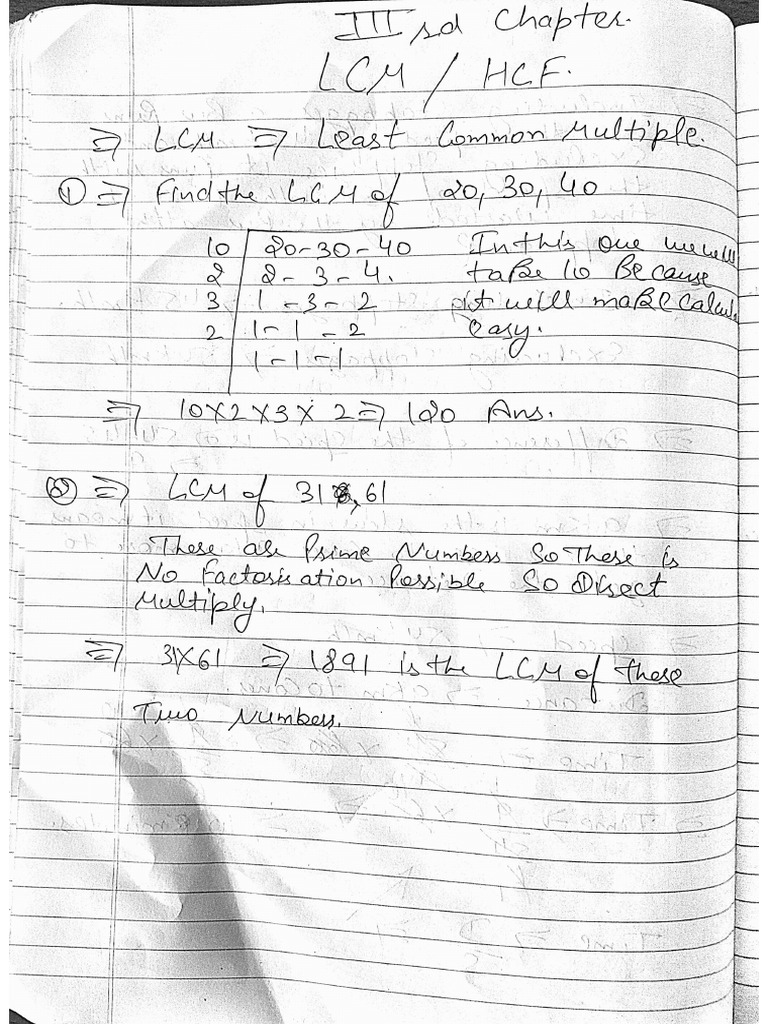 IIIrd Chapter.
LCM / HCF.
⇒ LCM ⇒ Least Common Multiple.
① ⇒ Find the LCM of 20, 30, 40
10 | 20-30-40 In this one we will
2 | 2-3-4. take 10 Because
3 | 1-3-2 it will make calcul
2 | 1-1-2 easy.
1-1-1
⇒ 10X2X3X2 ⇒ 120 Ans.
② ⇒ LCM of 31, 61
These are Prime Numbers So There is
No Factorisation Possible So Direct
Multiply.
⇒ 31X61 ⇒ 1891 is the LCM of these
Two Numbers.